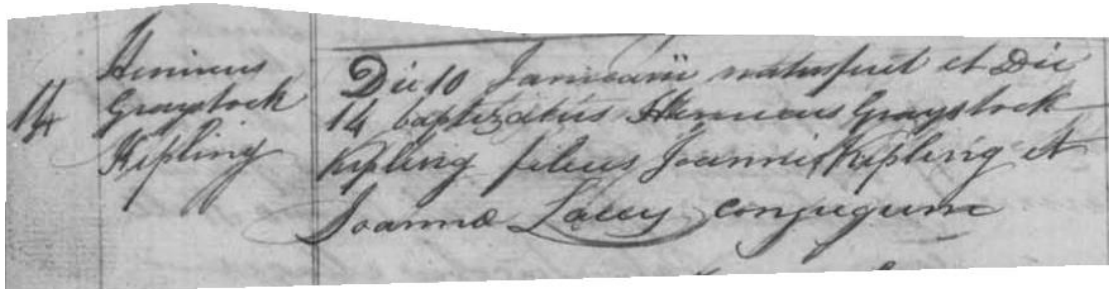 14
Henricus
Graystock
Kipling
Die 10 Januarii natus fuit et Die
14 baptizatus Henricus Graystock
Kipling filius Joannis Kipling et
Joannæ Lacey conjugum